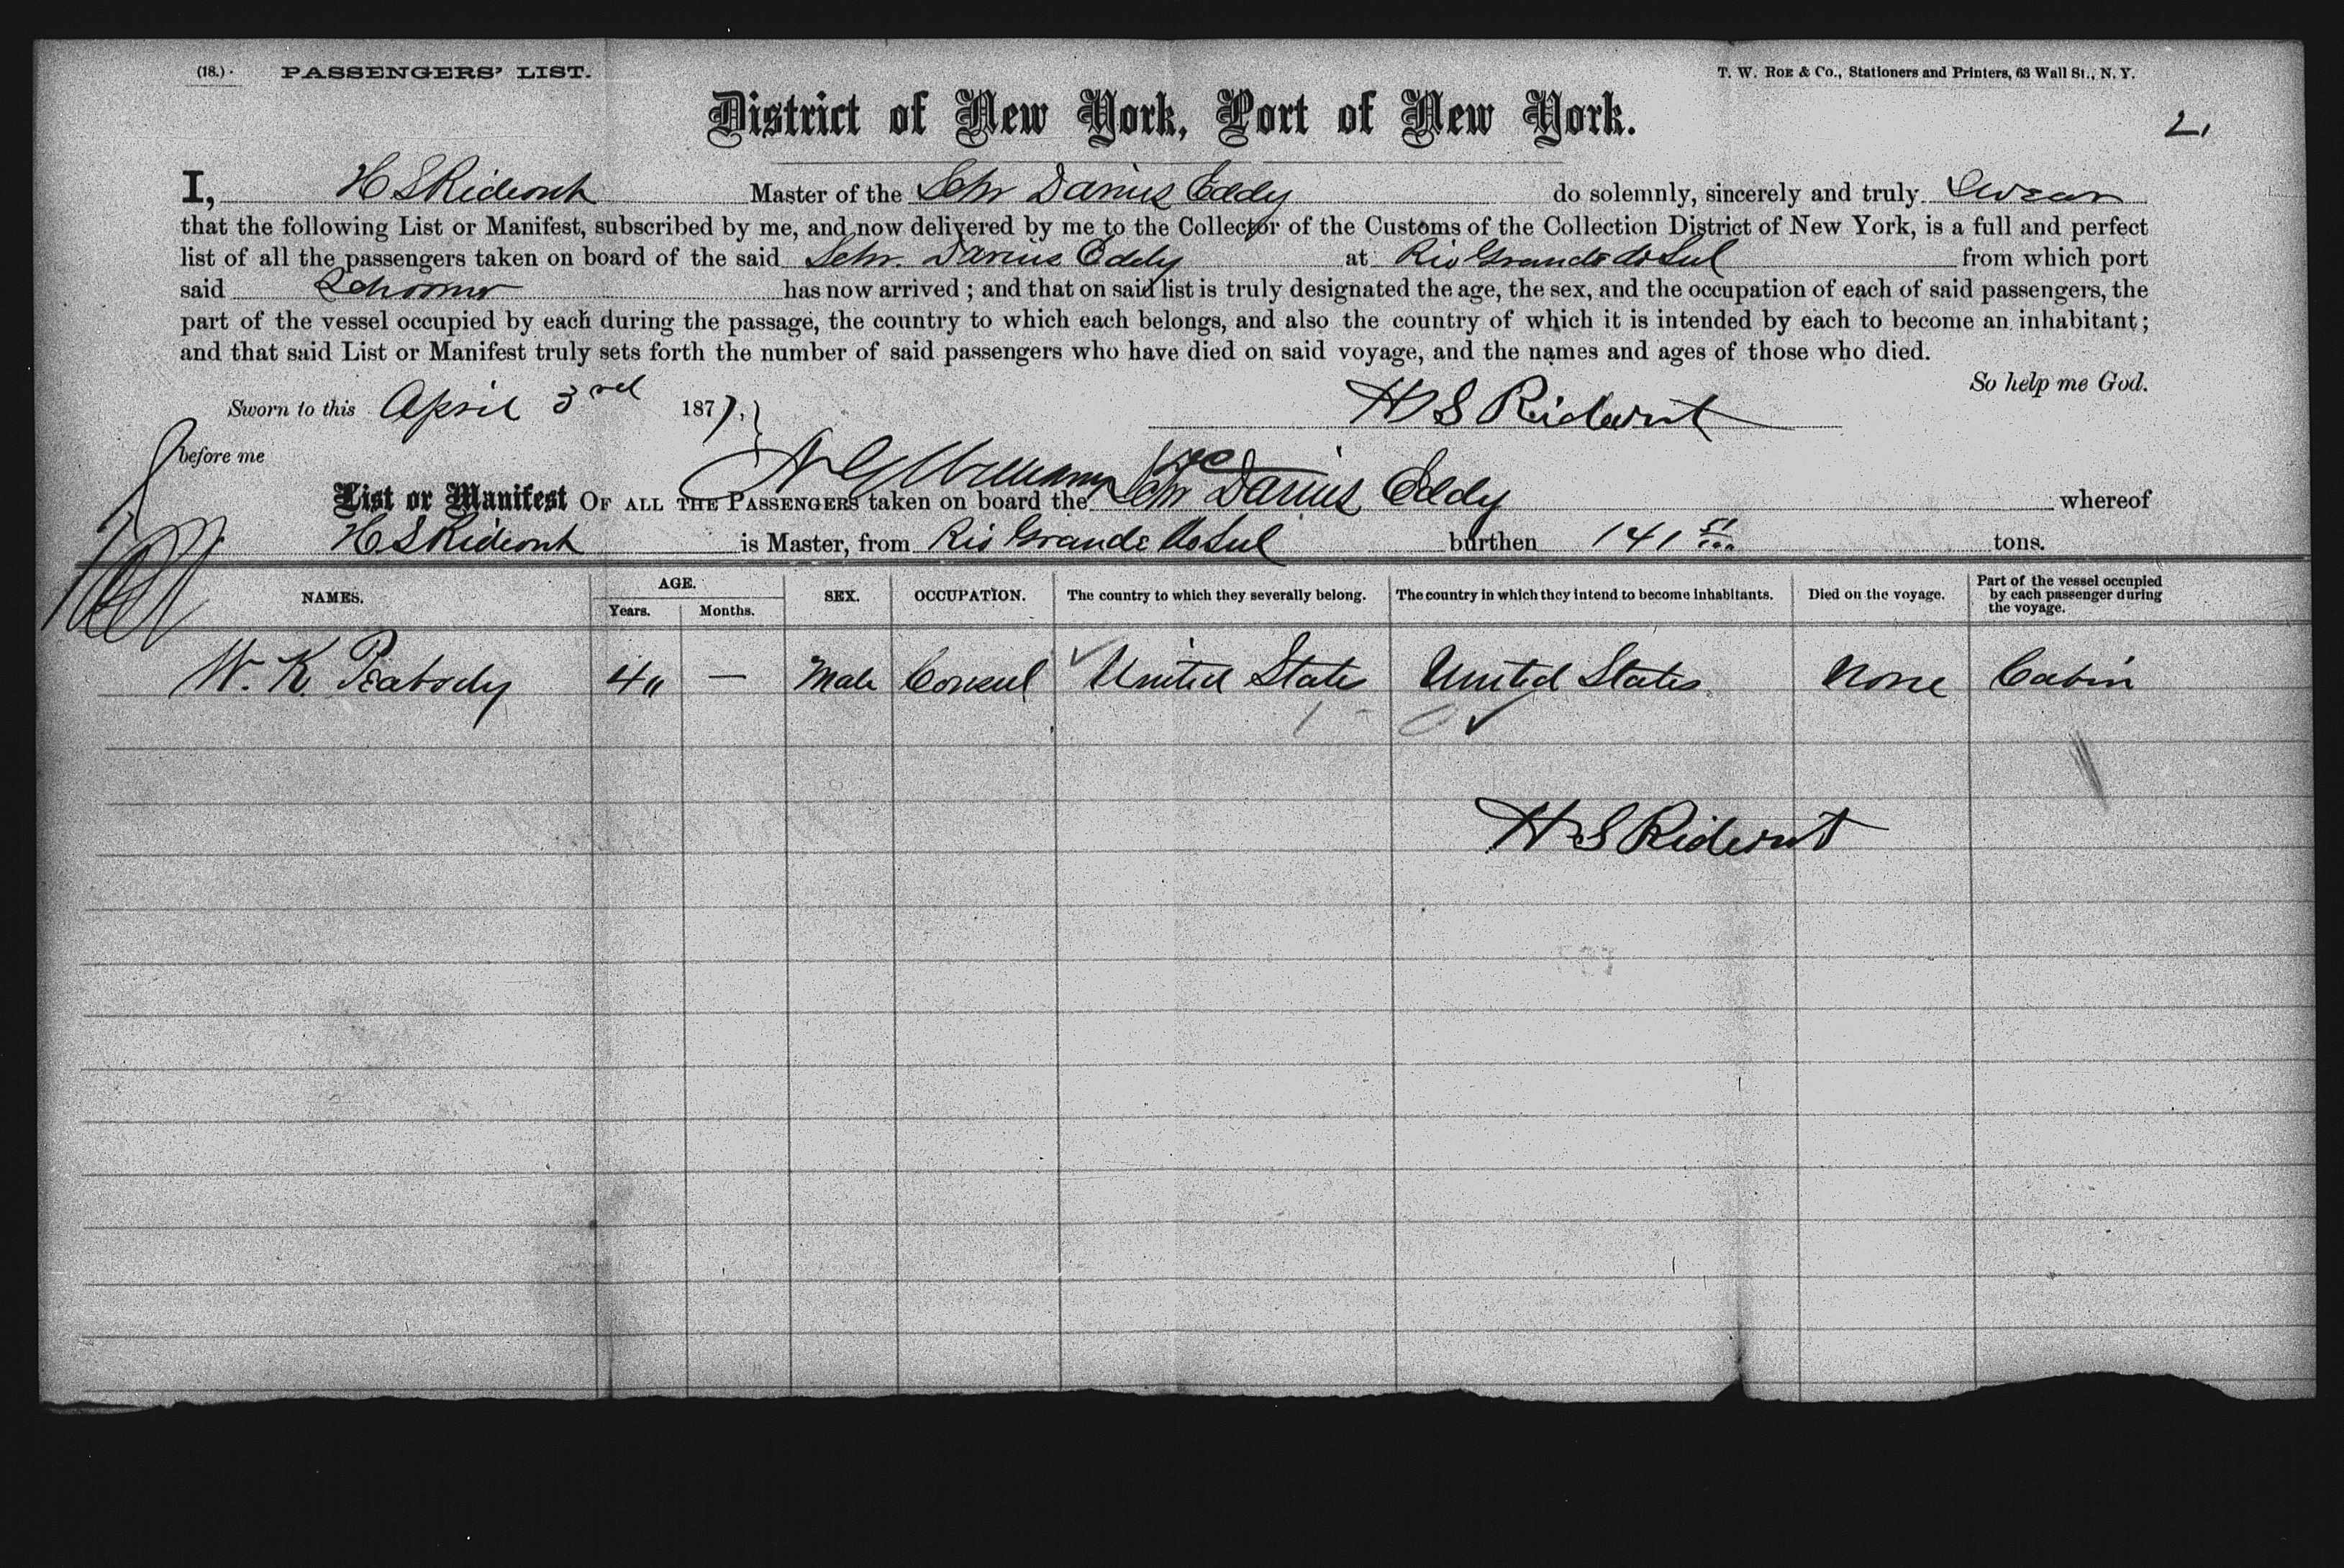 (18.) PASSENGERS' LIST. T. W. ROE & CO., Stationers and Printers, 63 Wall St., N. Y.
District of New York, Port of New York. 2,
I, H S Rideout Master of the Schr Darius Eddy do solemnly, sincerely and truly Swear
that the following List or Manifest, subscribed by me, and now delivered by me to the Collector of the Customs of the Collection District of New York, is a full and perfect
list of all the passengers taken on board of the said Schr. Darius Eddy at Rio Grande do Sul from which port
said Schooner has now arrived ; and that on said list is truly designated the age, the sex, and the occupation of each of said passengers, the
part of the vessel occupied by each during the passage, the country to which each belongs, and also the country of which it is intended by each to become an inhabitant ;
and that said List or Manifest truly sets forth the number of said passengers who have died on said voyage, and the names and ages of those who died.
So help me God.
Sworn to this April 3rd 1877, H S Rideout
before me
List or Manifest OF ALL THE PASSENGERS taken on board the Schr Darius Eddy whereof
H S Rideout is Master, from Rio Grande do Sul burthen 141 51/100 tons.
NAMES. AGE. Years. Months. SEX. OCCUPATION. The country to which they severally belong. The country in which they intend to become inhabitants. Died on the voyage. Part of the vessel occupied by each passenger during the voyage.
W. K Peabody 40 — Male Consul United States United States None Cabin
H S Rideout